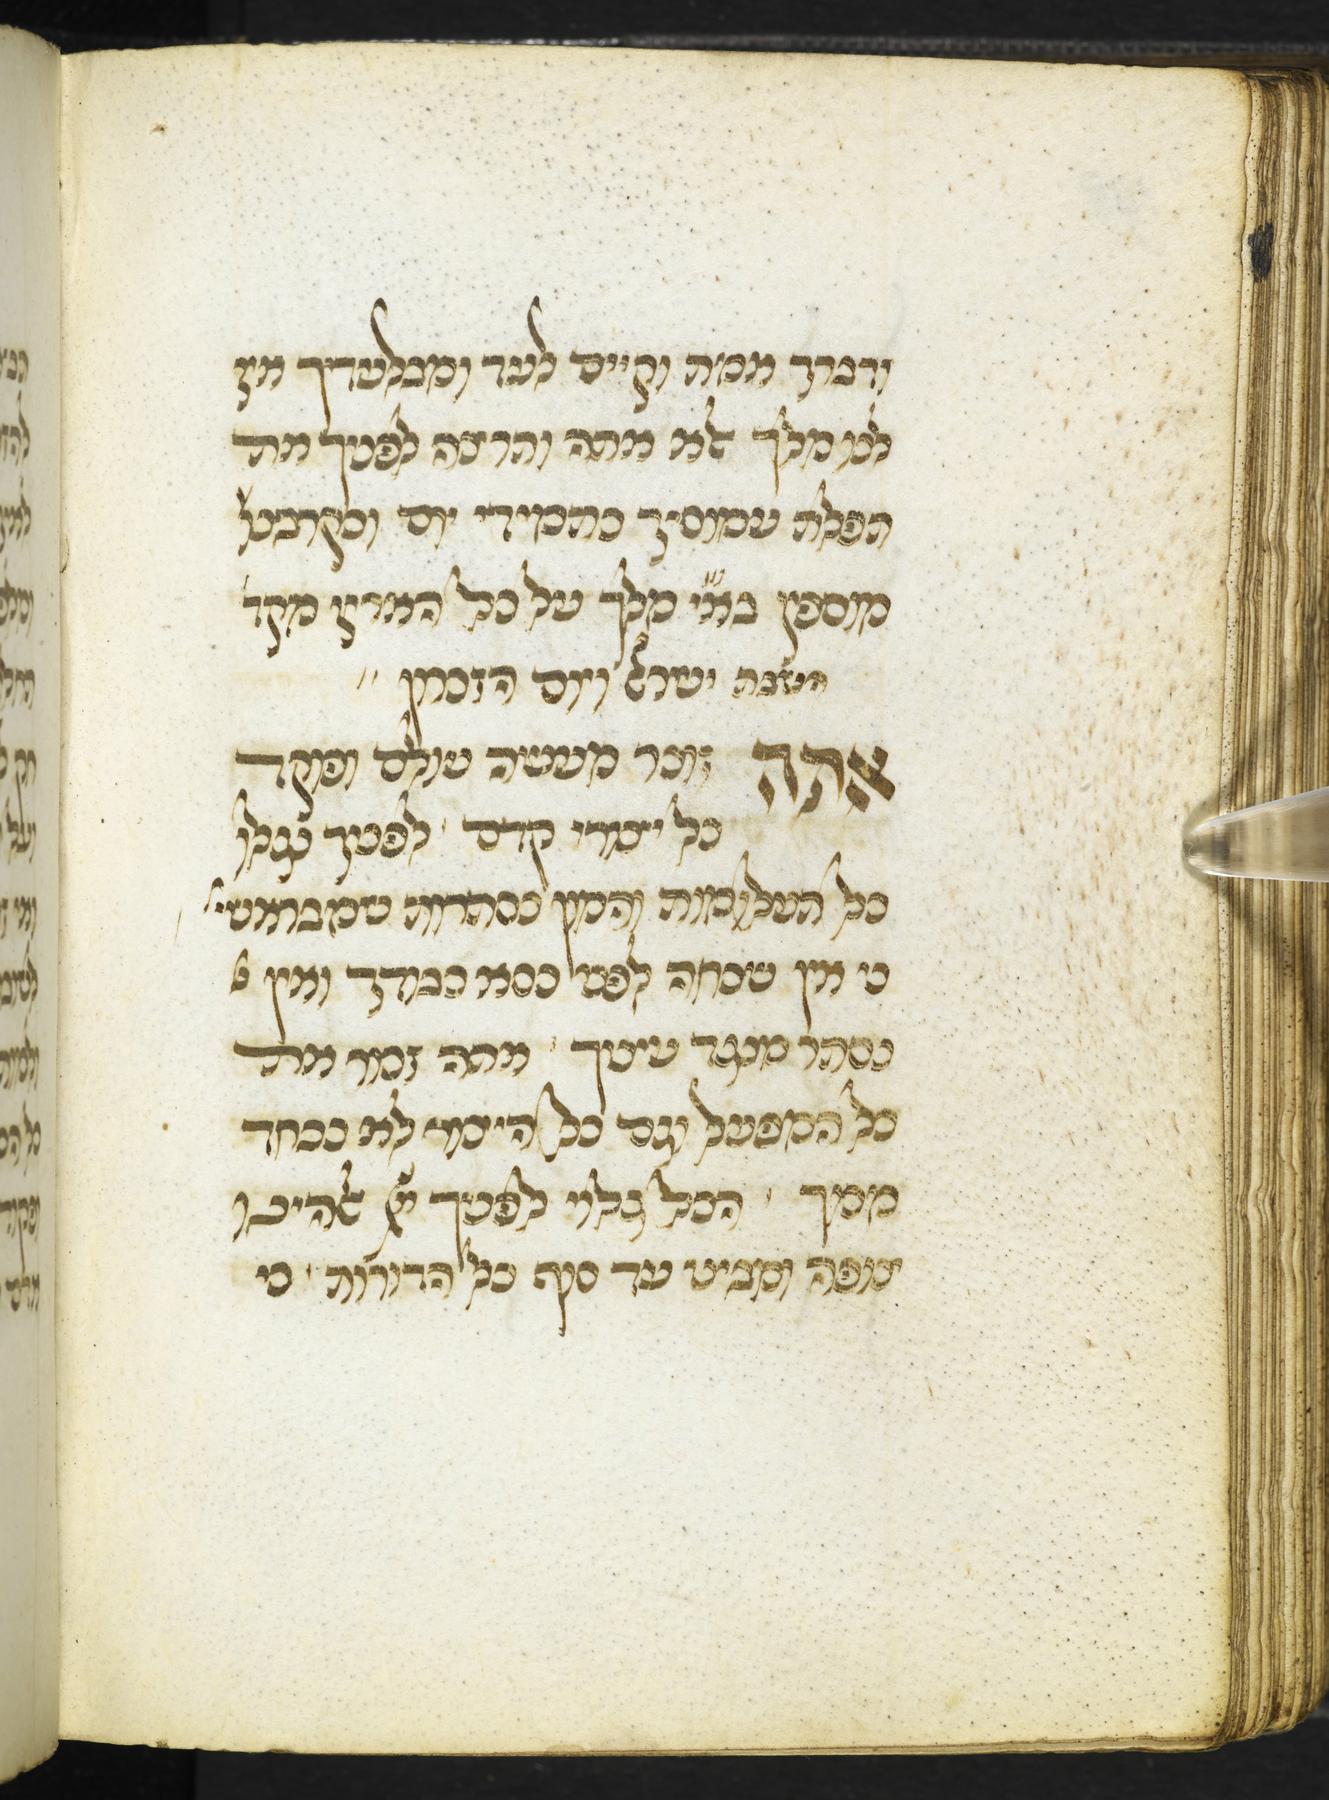 ודברך אמת וקיים לעד ומבלעדיך אין
לנו מלך אלא אתה והרצה לפניך את
תפלת עמוסיך כתמידי יום וכקרבנו
מוספין בא״י מלך על כל הארץ מקד
השבת ישרל ויום הזכרון
אתה זוכר מעשה עולם ופוקד
כל יצורי קדם לפניך נגלו
כל תעלומות והמון נסתרות שמבראשי
כי אין שכחה לפני כסא כבודך ואין נ
נסתר מנגד עיניך אתה זכור את
כל המפעל וגם כל היצור לא נכחד
ממך הכל גלוי לפניך יי אלהינו
צופה ומביט עד סוף כל הדורות כי